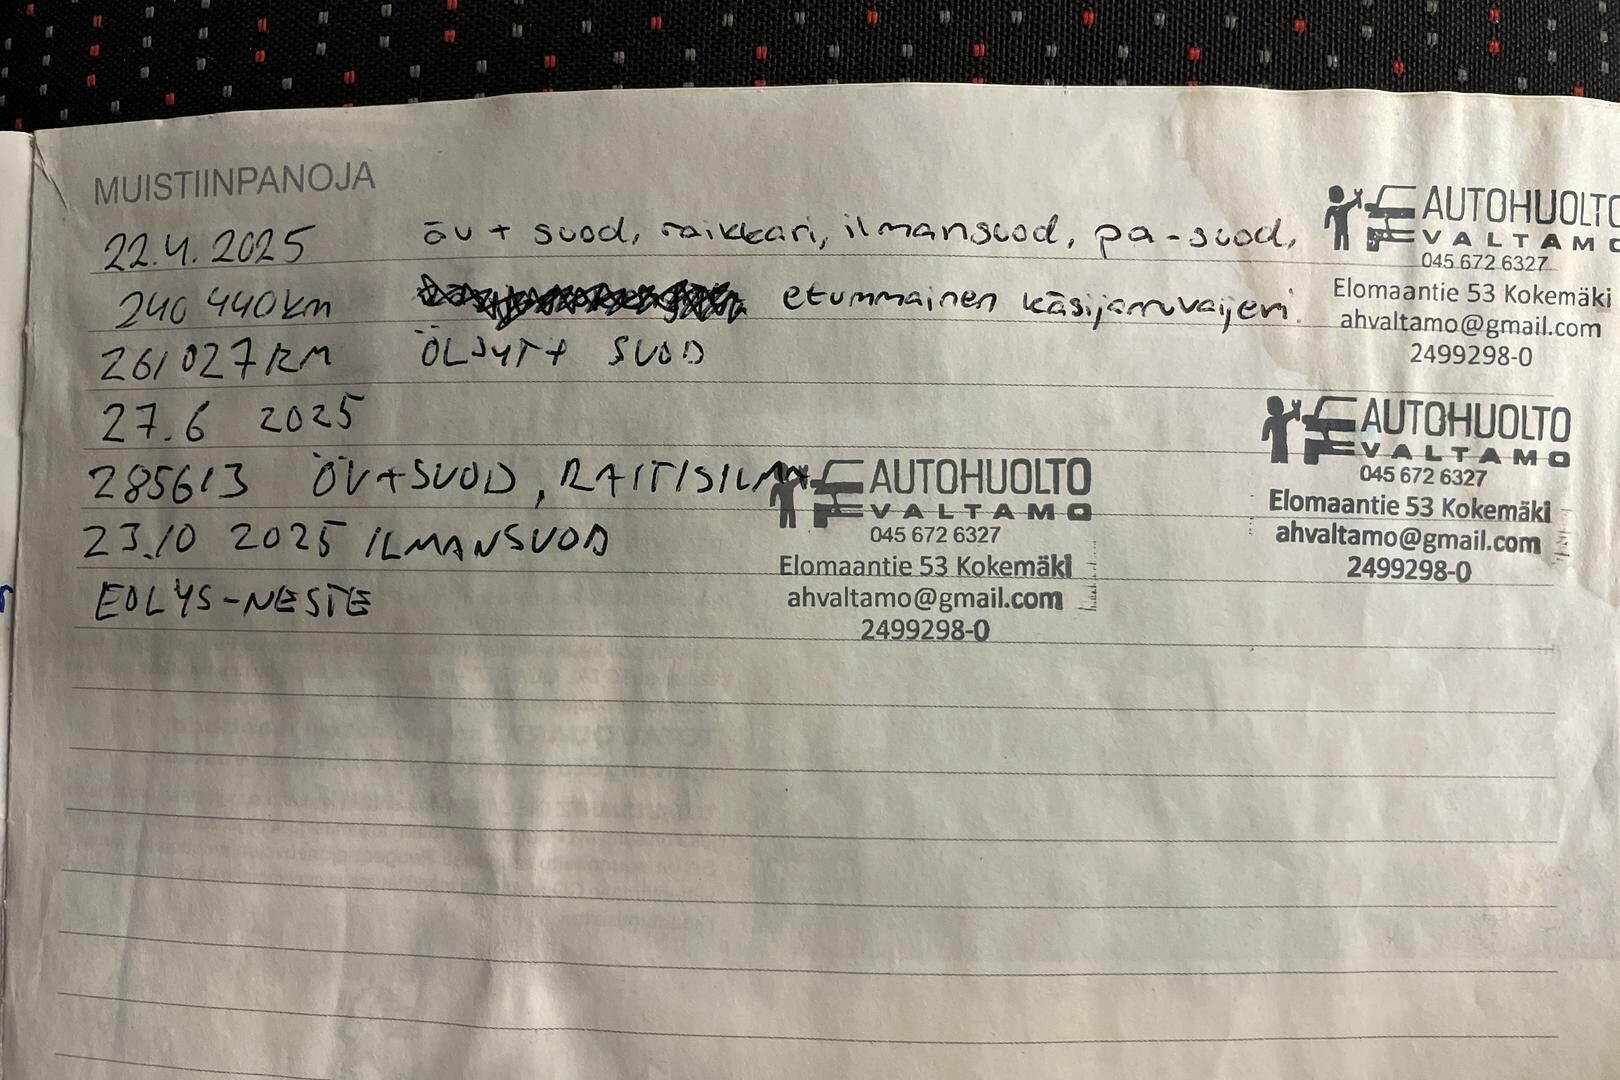 MUISTIINPANOJA
22.4.2025 öv + suod, raikkari, ilmansuod, pa-suod,
240 440km etummainen käsijarruvaijeri.
261 027 KM ÖLJYT+ SUOD
27.6 2025
285613 ÖV+SUOD, RAITISILMA
23.10 2025 ILMANSUOD
EOLYS-NESTE
AUTOHUOLTO
VALTAMO
045 672 6327
Elomaantie 53 Kokemäki
ahvaltamo@gmail.com
2499298-0
AUTOHUOLTO
VALTAMO
045 672 6327
Elomaantie 53 Kokemäki
ahvaltamo@gmail.com
2499298-0
AUTOHUOLTO
VALTAMO
045 672 6327
Elomaantie 53 Kokemäki
ahvaltamo@gmail.com
2499298-0